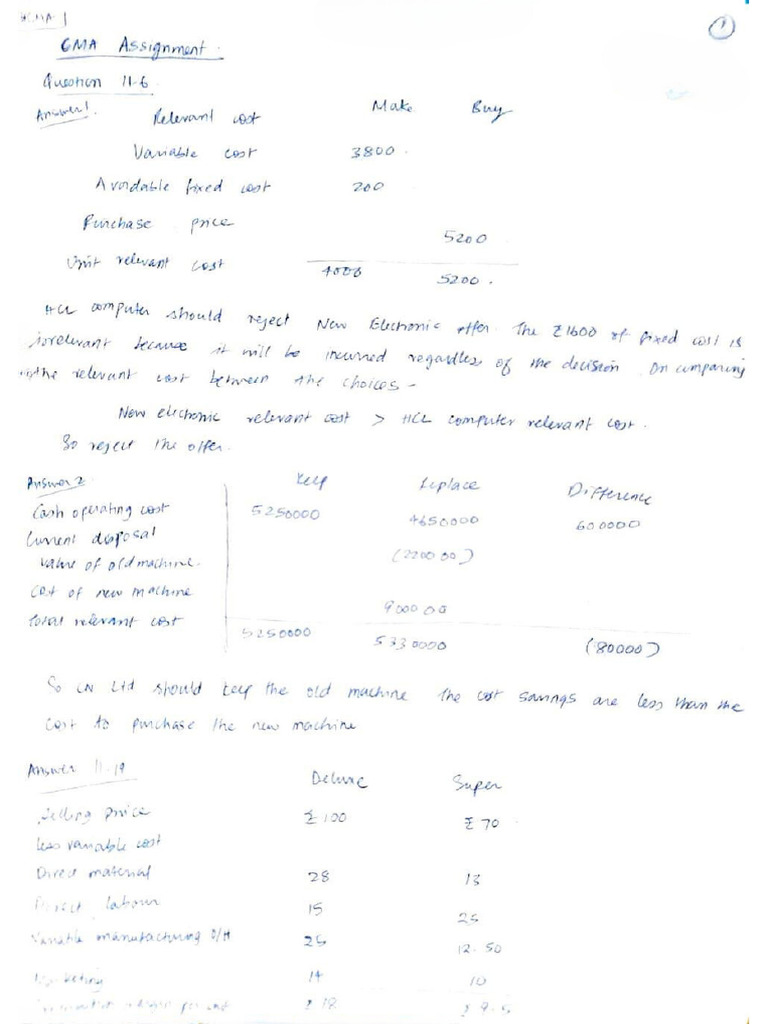 CMA 1
①
CMA Assignment.
Question 11-6
Answer 1. Relevant cost Make Buy
Variable cost 3800
Avoidable fixed cost 200
Purchase price 5200
Unit relevant cost 4000 5200
HCL computer should reject New Electronic offer. The ₹1600 of fixed cost is
irrelevant because it will be incurred regardless of the decision. On comparing
the relevant cost between the choices -
New electronic relevant cost > HCL computer relevant cost.
So reject the offer.
Answer 2 Keep Replace Difference
Cash operating cost 5250000 4650000 600000
Current disposal
value of old machine. (220000)
Cost of new machine 900000
Total relevant cost 5250000 5330000 (80000)
So Ltd should keep the old machine the cost savings are less than the
cost to purchase the new machine
Answer 11-19 Deluxe Super
Selling price ₹100 ₹70
less variable cost
Direct material 28 13
Direct labour 15 25
Variable manufacturing O/H 25 12.50
Marketing 14 10
₹18 ₹9.5